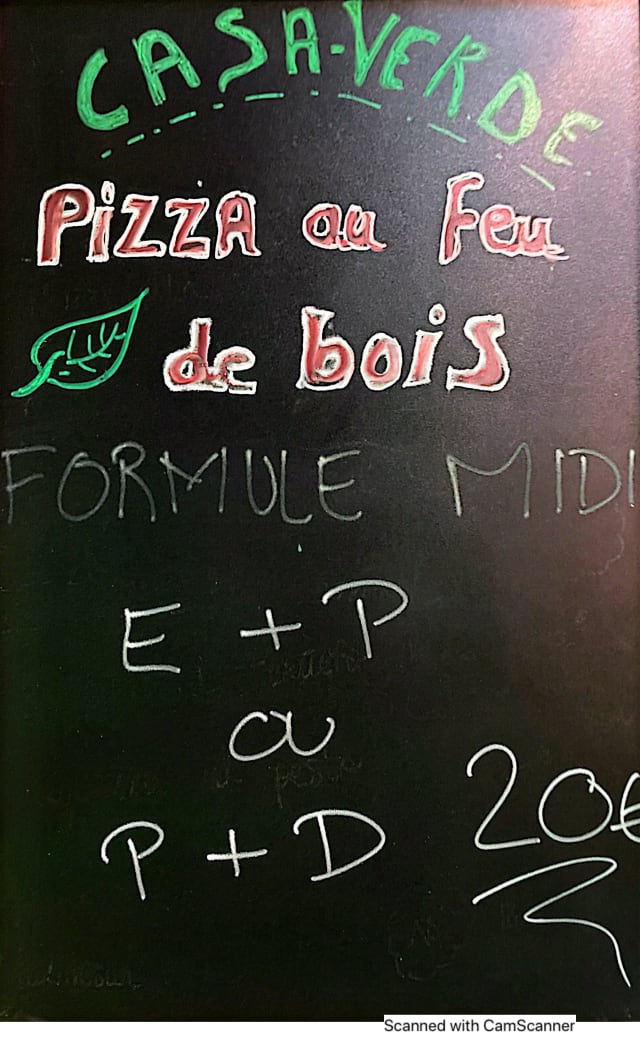 CASA-VERDE
PiZZA au Feu
de bois
FORMULE MIDI
E + P
ou
P + D
20€
Scanned with CamScanner